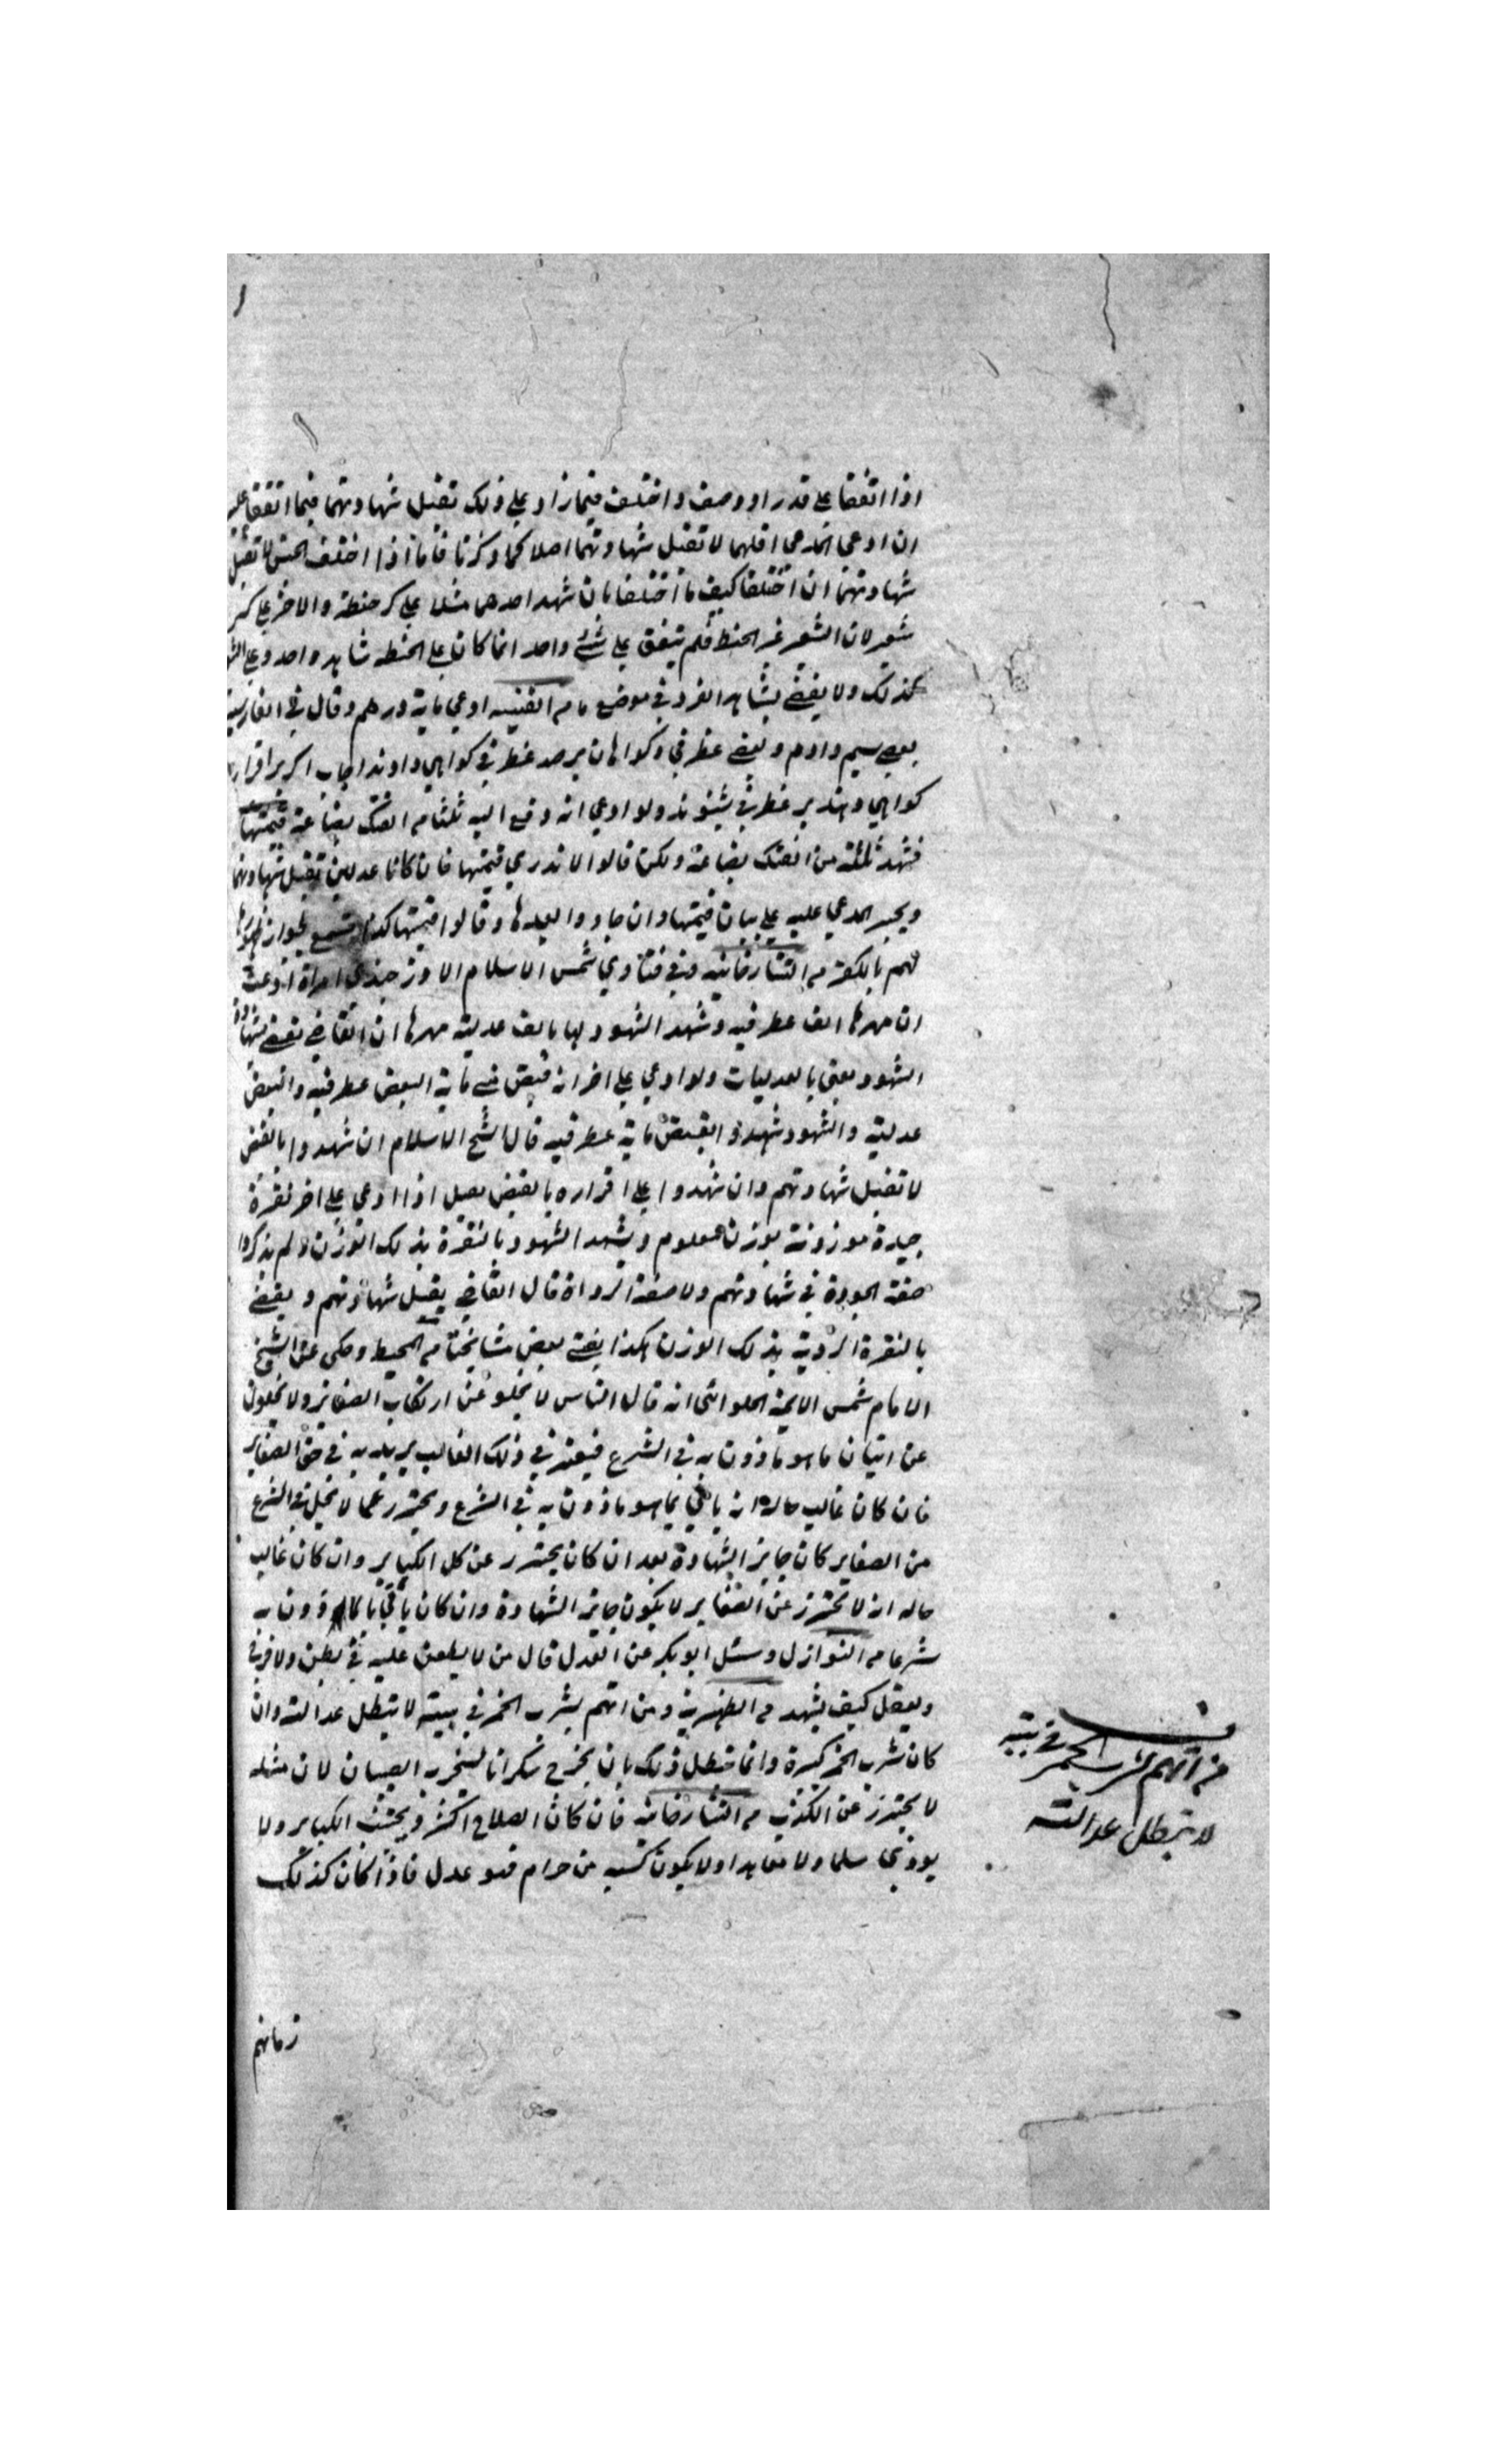 اذا اتفقا على قدر او وصف واختلف فيما زاد على ذلك تقبل شهادتهما فيما اتفقا عليه
ان ادعى المدعي اقلهما لا تقبل شهادتهما اصلا كما ذكرنا فاما اذا اختلف الجنس لا تقبل
شهادتهما ان اختلفا كيف ما اختلفا بان شهد احدهما مثلا على كر حنطة والاخر على كر
شعير لان الشعير غير الحنطة فلم يتفق على شئ واحد انما كان على الحنطه شاهد واحد وعلى
كذلك ولا يقضى بشاهد الفرد في موضع ما من القنيه ادعى ماية درهم وقال في الفارسية
بعض سيم دادم وبعضى غطرفي وكواهان برصد غطرفي كواهي دادند
كواهي دهند بر غطرفي بشنوند ولو ادعى انه دفع اليه ثلثا من الفنك بضاعة قيمتها
فشهد ثلثة من الفنك بضاعة ولكن قالوا لا ندري قيمتها فان كانا عدلين تقبل شهادتهما
ويجبر المدعي عليه على بيان قيمتها وان جاووا بعدها وقالوا قيمتها كذا تسمع لجواز
لهم بالكوفة من التتارخانيه وفي فتاوي شمس الاسلام الاوزجندي امراة ادعت
ان مهرها الف غطرفيه وشهد الشهود لها بالف عدلية مهرها ان القاضي يقضي بشهادة
الشهود يعني بالعدليات ولو ادعى على اخر انه قبض مني ماية البعض غطرفيه والبعض
عدلية والشهود شهدوا بقبض ماية غطرفيه قال شيخ الاسلام ان شهدوا بالقبض
لا تقبل شهادتهم وان شهدوا على اقراره بالقبض يقبل اذا ادعى على اخر نقرة
جيدة موزونة بوزن معلوم ويشهد الشهود بالنقرة بذلك الوزن ولم يذكروا
صفة الجودة في شهادتهم ولا صفة الرداة قال القاضي يقبل شهادتهم ويقضي
بالنقرة الردية بذلك الوزن هكذا يفتي بعض مشايخنا من المحيط وحكى عن الشيخ
الامام شمس الايمة الحلواني انه قال الناس لا يخلو عن ارتكاب الصغاير ولا يخلون
عن اتيان ما هو ماذون به في الشرع فيعتبر في ذلك الغالب يريد به في حق الصغاير
فان كان غالب حاله انه ياتي بما هو ماذون به في الشرع ويحترز عما لا يحل في الشرع
من الصغاير كان جايز الشهادة بعد ان كان يحترز عن كل الكباير وان كان غالب
حاله انه لا يحترز عن الصغاير لا يكون جايز الشهادة وان كان ياتي بالماذون به
شرعا من النوازل وسئل ابو بكر عن العدل قال من لا يطعن عليه في بطن ولا فرج
ويعقل كيف يشهد من الظهيرية ومن اتهم بشرب الخمر في بيته لا يبطل عدالته وان
كان شرب الخمر كبيرة وانما تبطل ذلك بان يخرج سكرانا ليسخر به الصبيان لان مثله
لا يحترز عن الكذب من التتارخانيه فان كان الصلاح اكثر ويجتنب الكباير ولا
يوذي مسلما ولا معاهدا ولا يكون كسبه من حرام فهو عدل فاذا كان كذلك
من اتهم بشرب الخمر في بيته
لا يبطل عدالته
زمانهم